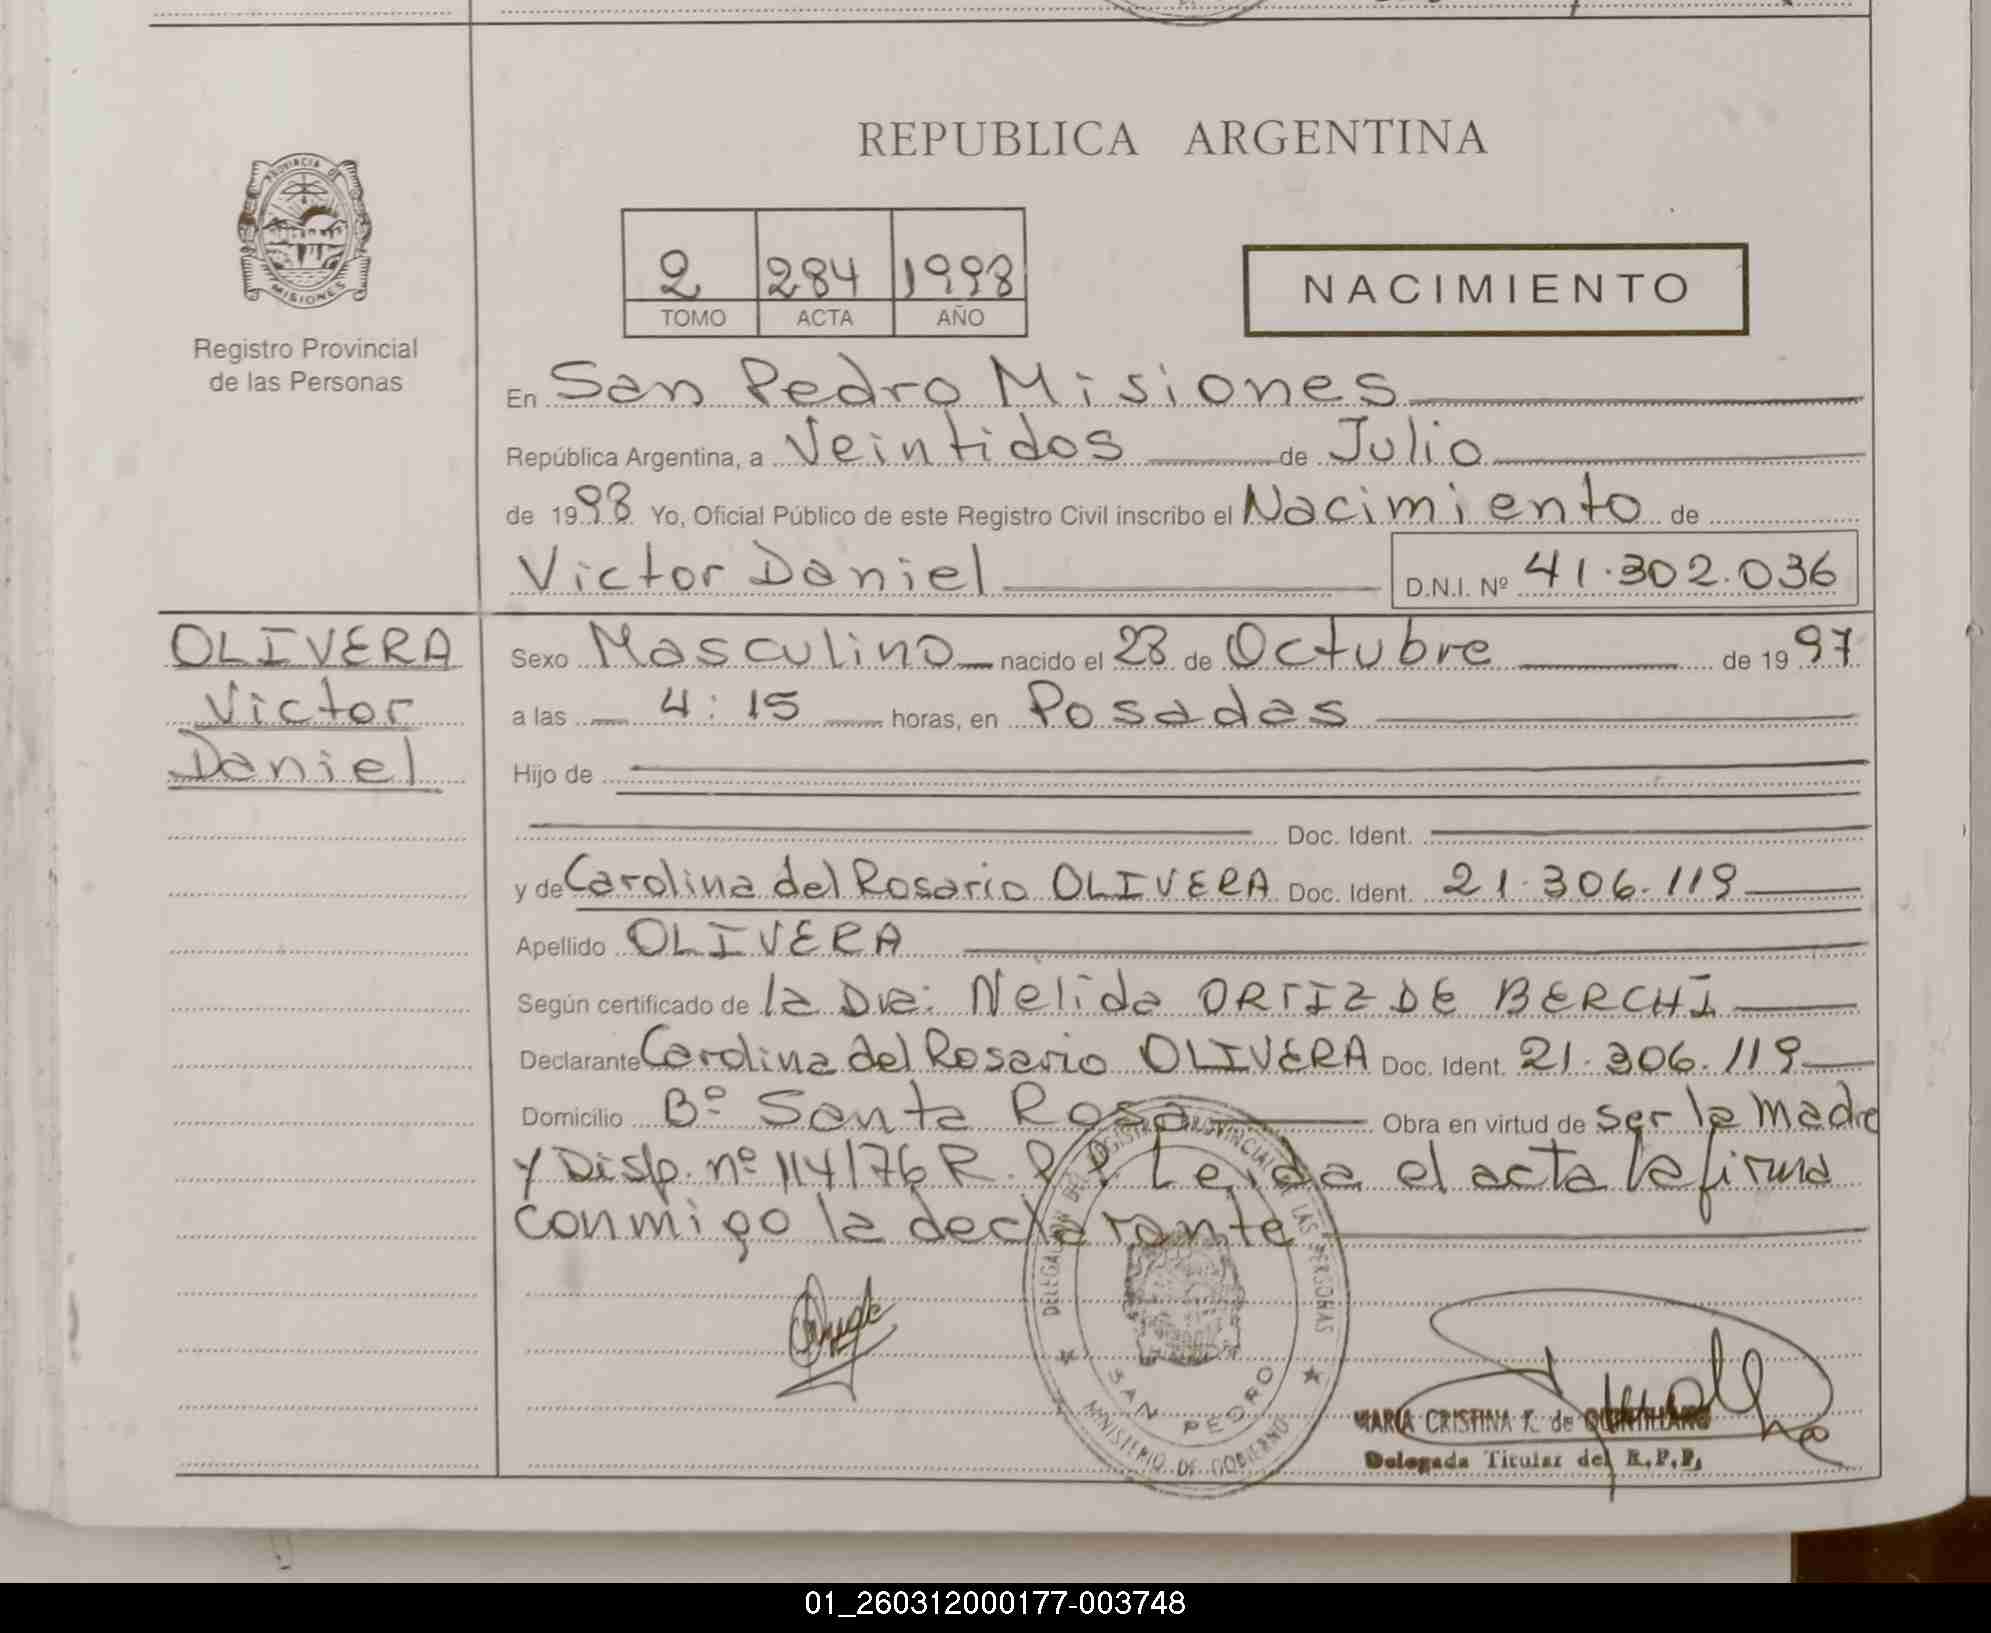 PROVINCIA DE
MISIONES
Registro Provincial
de las Personas
REPUBLICA ARGENTINA
2 284 1998
TOMO ACTA AÑO
NACIMIENTO
En San Pedro Misiones
República Argentina, a Veintidos de Julio
de 1998 Yo, Oficial Público de este Registro Civil inscribo el Nacimiento de
Victor Daniel D.N.I. Nº 41.302.036
OLIVERA
Victor
Daniel
Sexo Masculino nacido el 28 de Octubre de 1997
a las 4:15 horas, en Posadas
Hijo de
Doc. Ident.
y de Carolina del Rosario OLIVERA Doc. Ident. 21.306.119
Apellido OLIVERA
Según certificado de la Dra: Nelida ORTIZ DE BERCHI
Declarante Carolina del Rosario OLIVERA Doc. Ident. 21.306.119
Domicilio Bº Santa Rosa Obra en virtud de ser la madre
y Disp. nº 114/76 R.P.P Leida el acta la firma
conmigo la declarante
DELEGACION DEL REGISTRO PROVINCIAL DE LAS PERSONAS
SAN PEDRO
MINISTERIO DE GOBIERNO
MARIA CRISTINA F. de QUINTILLANO
Delegada Titular del R.P.P.
01_260312000177-003748